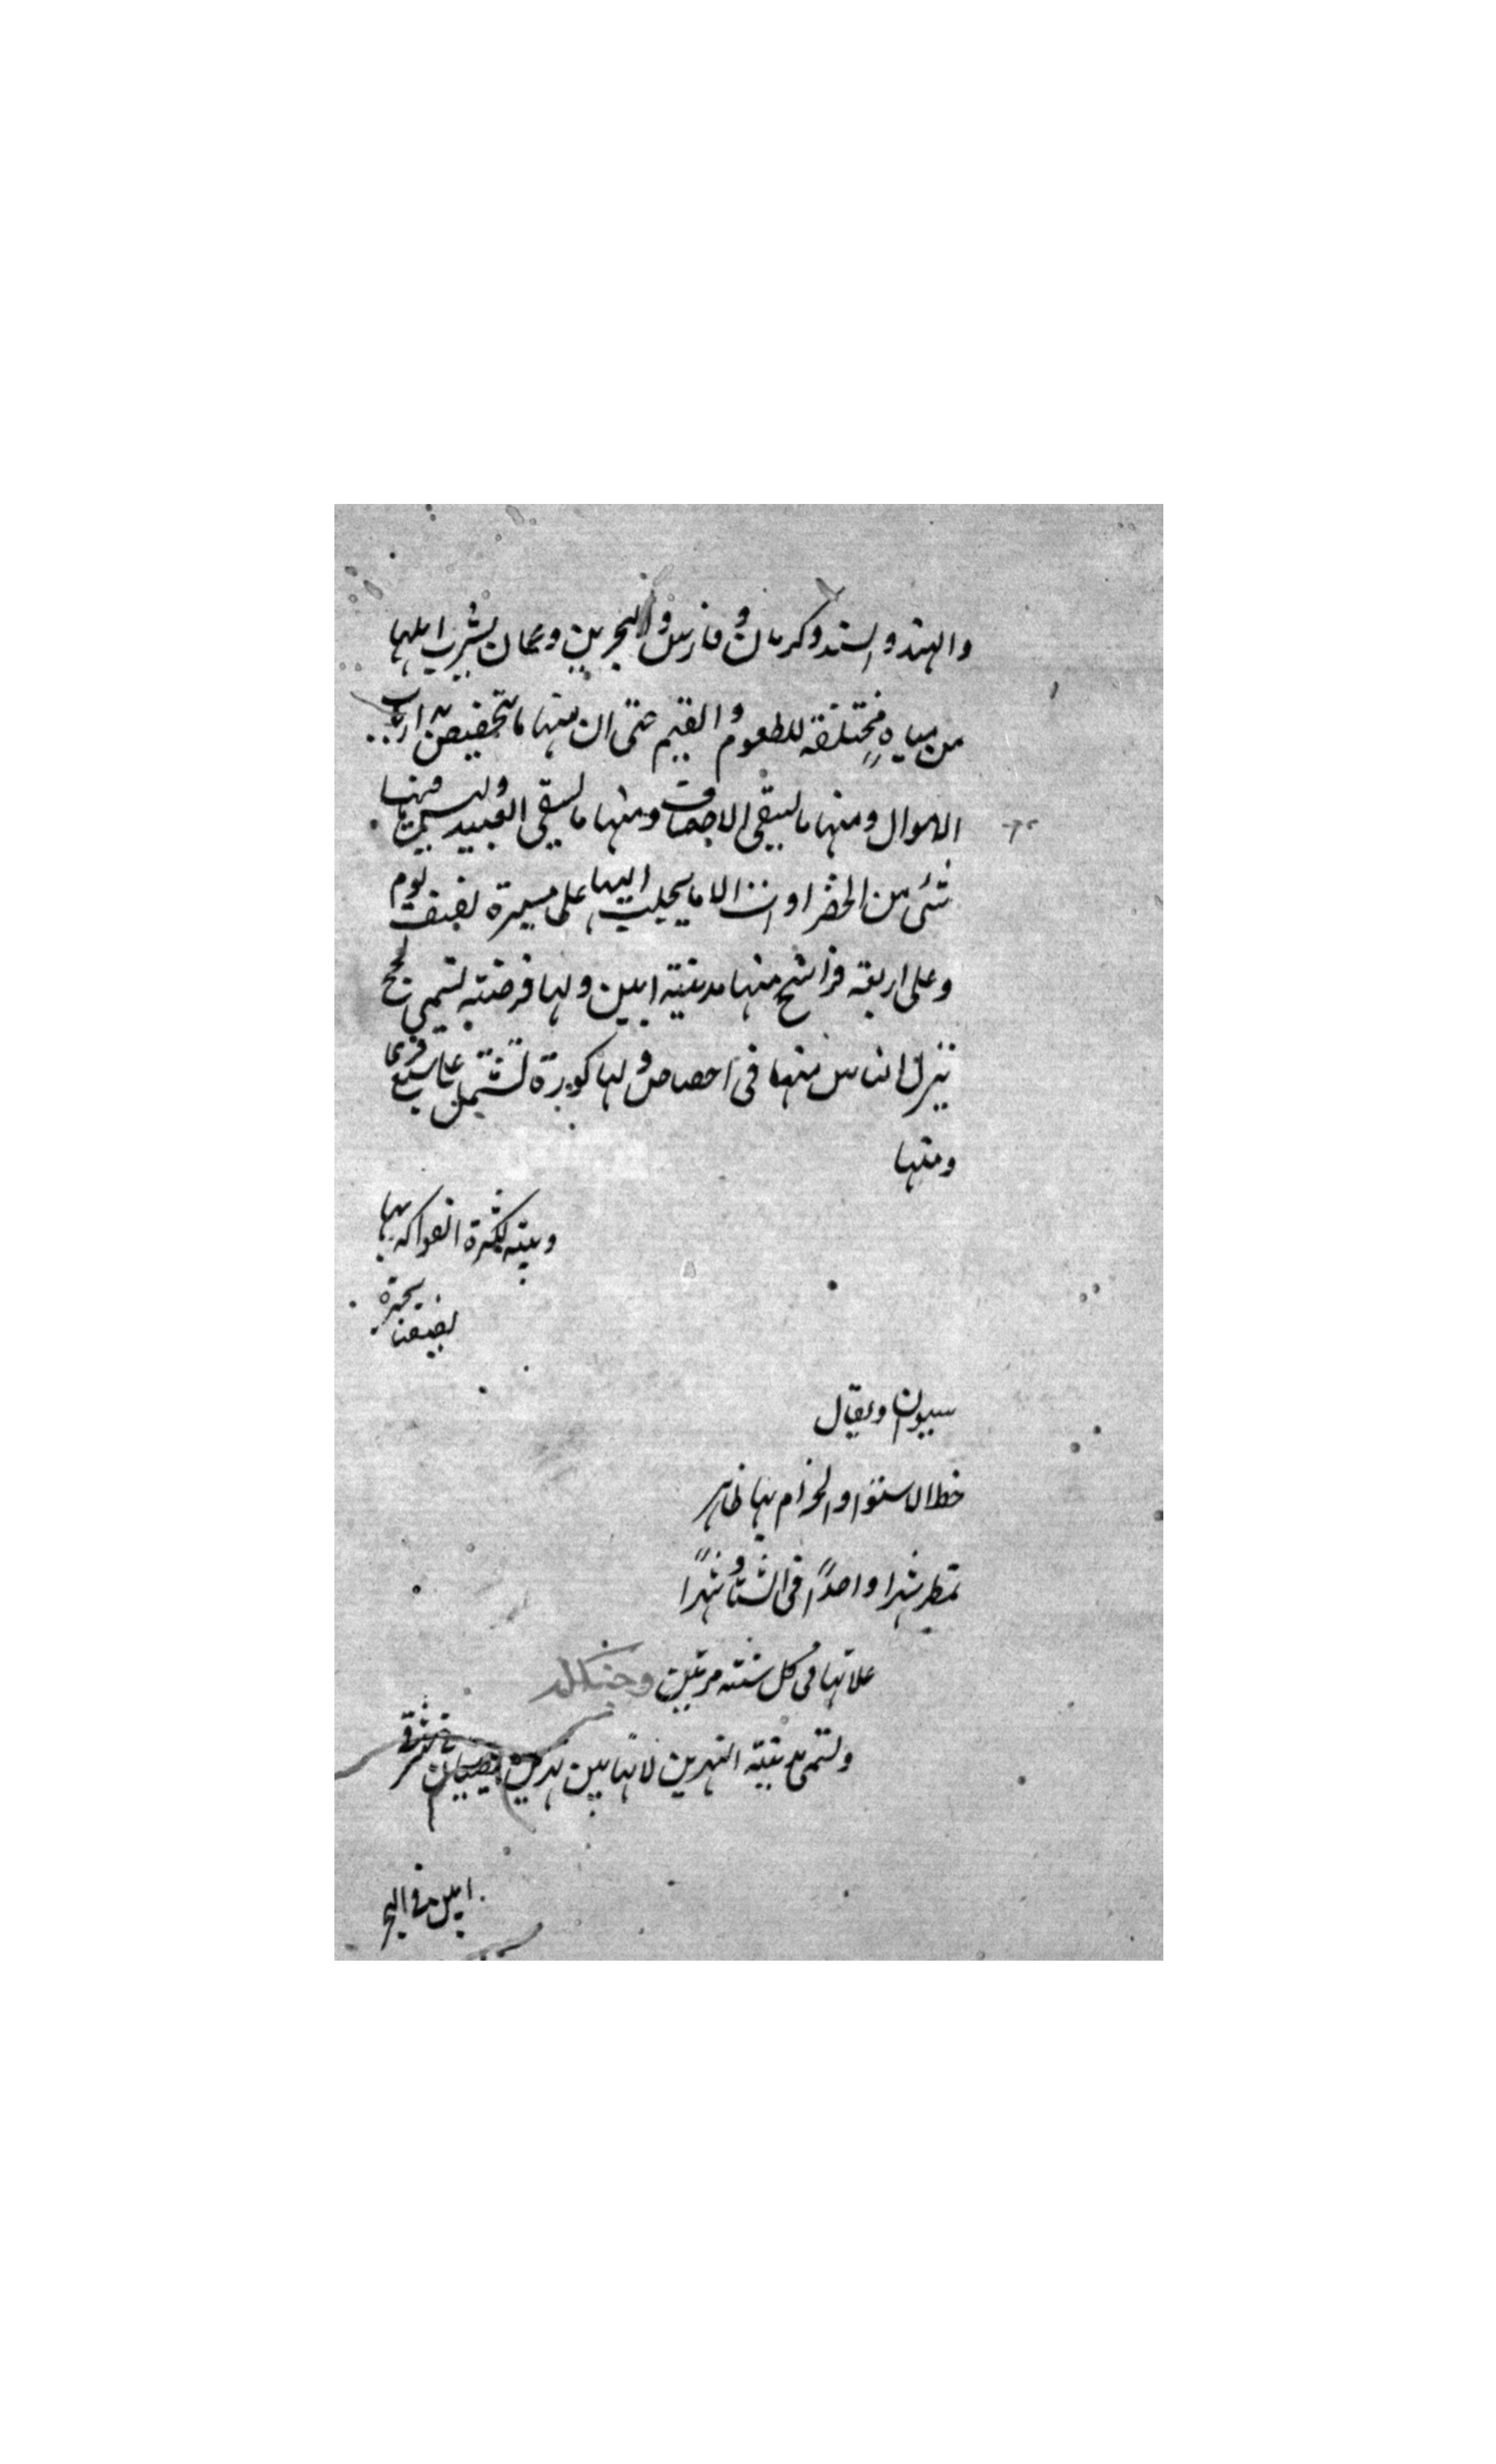 والهند والسند وكرمان وفارس والبحرين وعمان يشرب اهلها
من مياهٍ مختلفة للطعوم والقيم حتى ان منها ما يختص به ارباب
الاموال ومنها ما يسقى الاضياف ومنها ما يسقى العبيد وليس فيها
شئ من الخضراوات الا ما يجلب اليها على مسيرة نصف يوم
وعلى اربعة فراسخ منها مدينة ابين ولها فرضة تسمى لحج
ينزل الناس منها فى اخصاص ولها كورة تشتمل على سبع قرى
ومنها
وبيته لكثرة الفواكه بها
بحيرة
نصيفنا
سيون ويقال
خط الاستوا والجذام بها ظاهر
تمطر شهرا واحدًا فى الشتا وشهرًا
غلاتها فى كل سنة مرتين
وتسمى مدينة النهرين لانها بين نهرين يصبان شرقى
ابين فى البحر